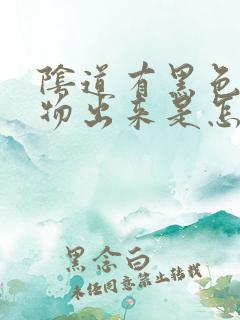 陰道有黑色
物出来是怎
黑念白
未经同意禁止转载